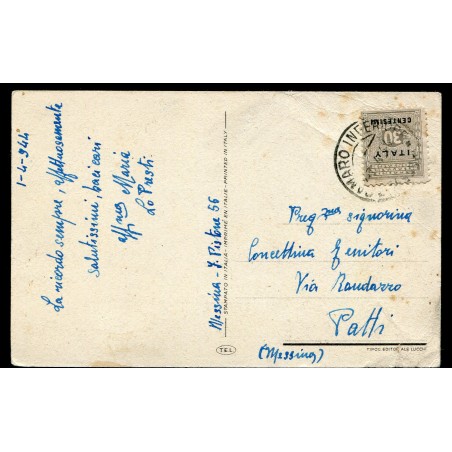 1-4-944
La ricordo sempre, affettuosamente
Salutissimi, baci cari
aff.ma Maria
Lo Presti.
Messina - 
56
STAMPATO IN ITALIA - IMPRIMÉ EN ITALIE - PRINTED IN ITALY
TEL
ITALY
CENTESIMI
CAMARO INFERIORE
Preg.ma signorina
Concettina Genitori
Via Randazzo
Patti
(Messina)
TIPOC EDITORIALE LUCCHI